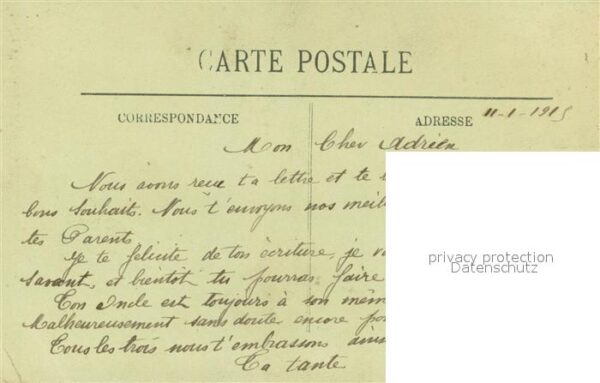 CARTE POSTALE
CORRESPONDANCE
ADRESSE
11-1-1915
Mon Cher Adrien
Nous avons reçu ta lettre et te
bons souhaits. Nous t'envoyons nos meil
tes Parents
Je te félicite de ton écriture, je
savant, et bientôt tu pourras faire
Ton Oncle est toujours à son mêm
Malheureusement sans doute encore
Tous les trois nous t'embrassons ains
Ta tante
privacy protection
Datenschutz